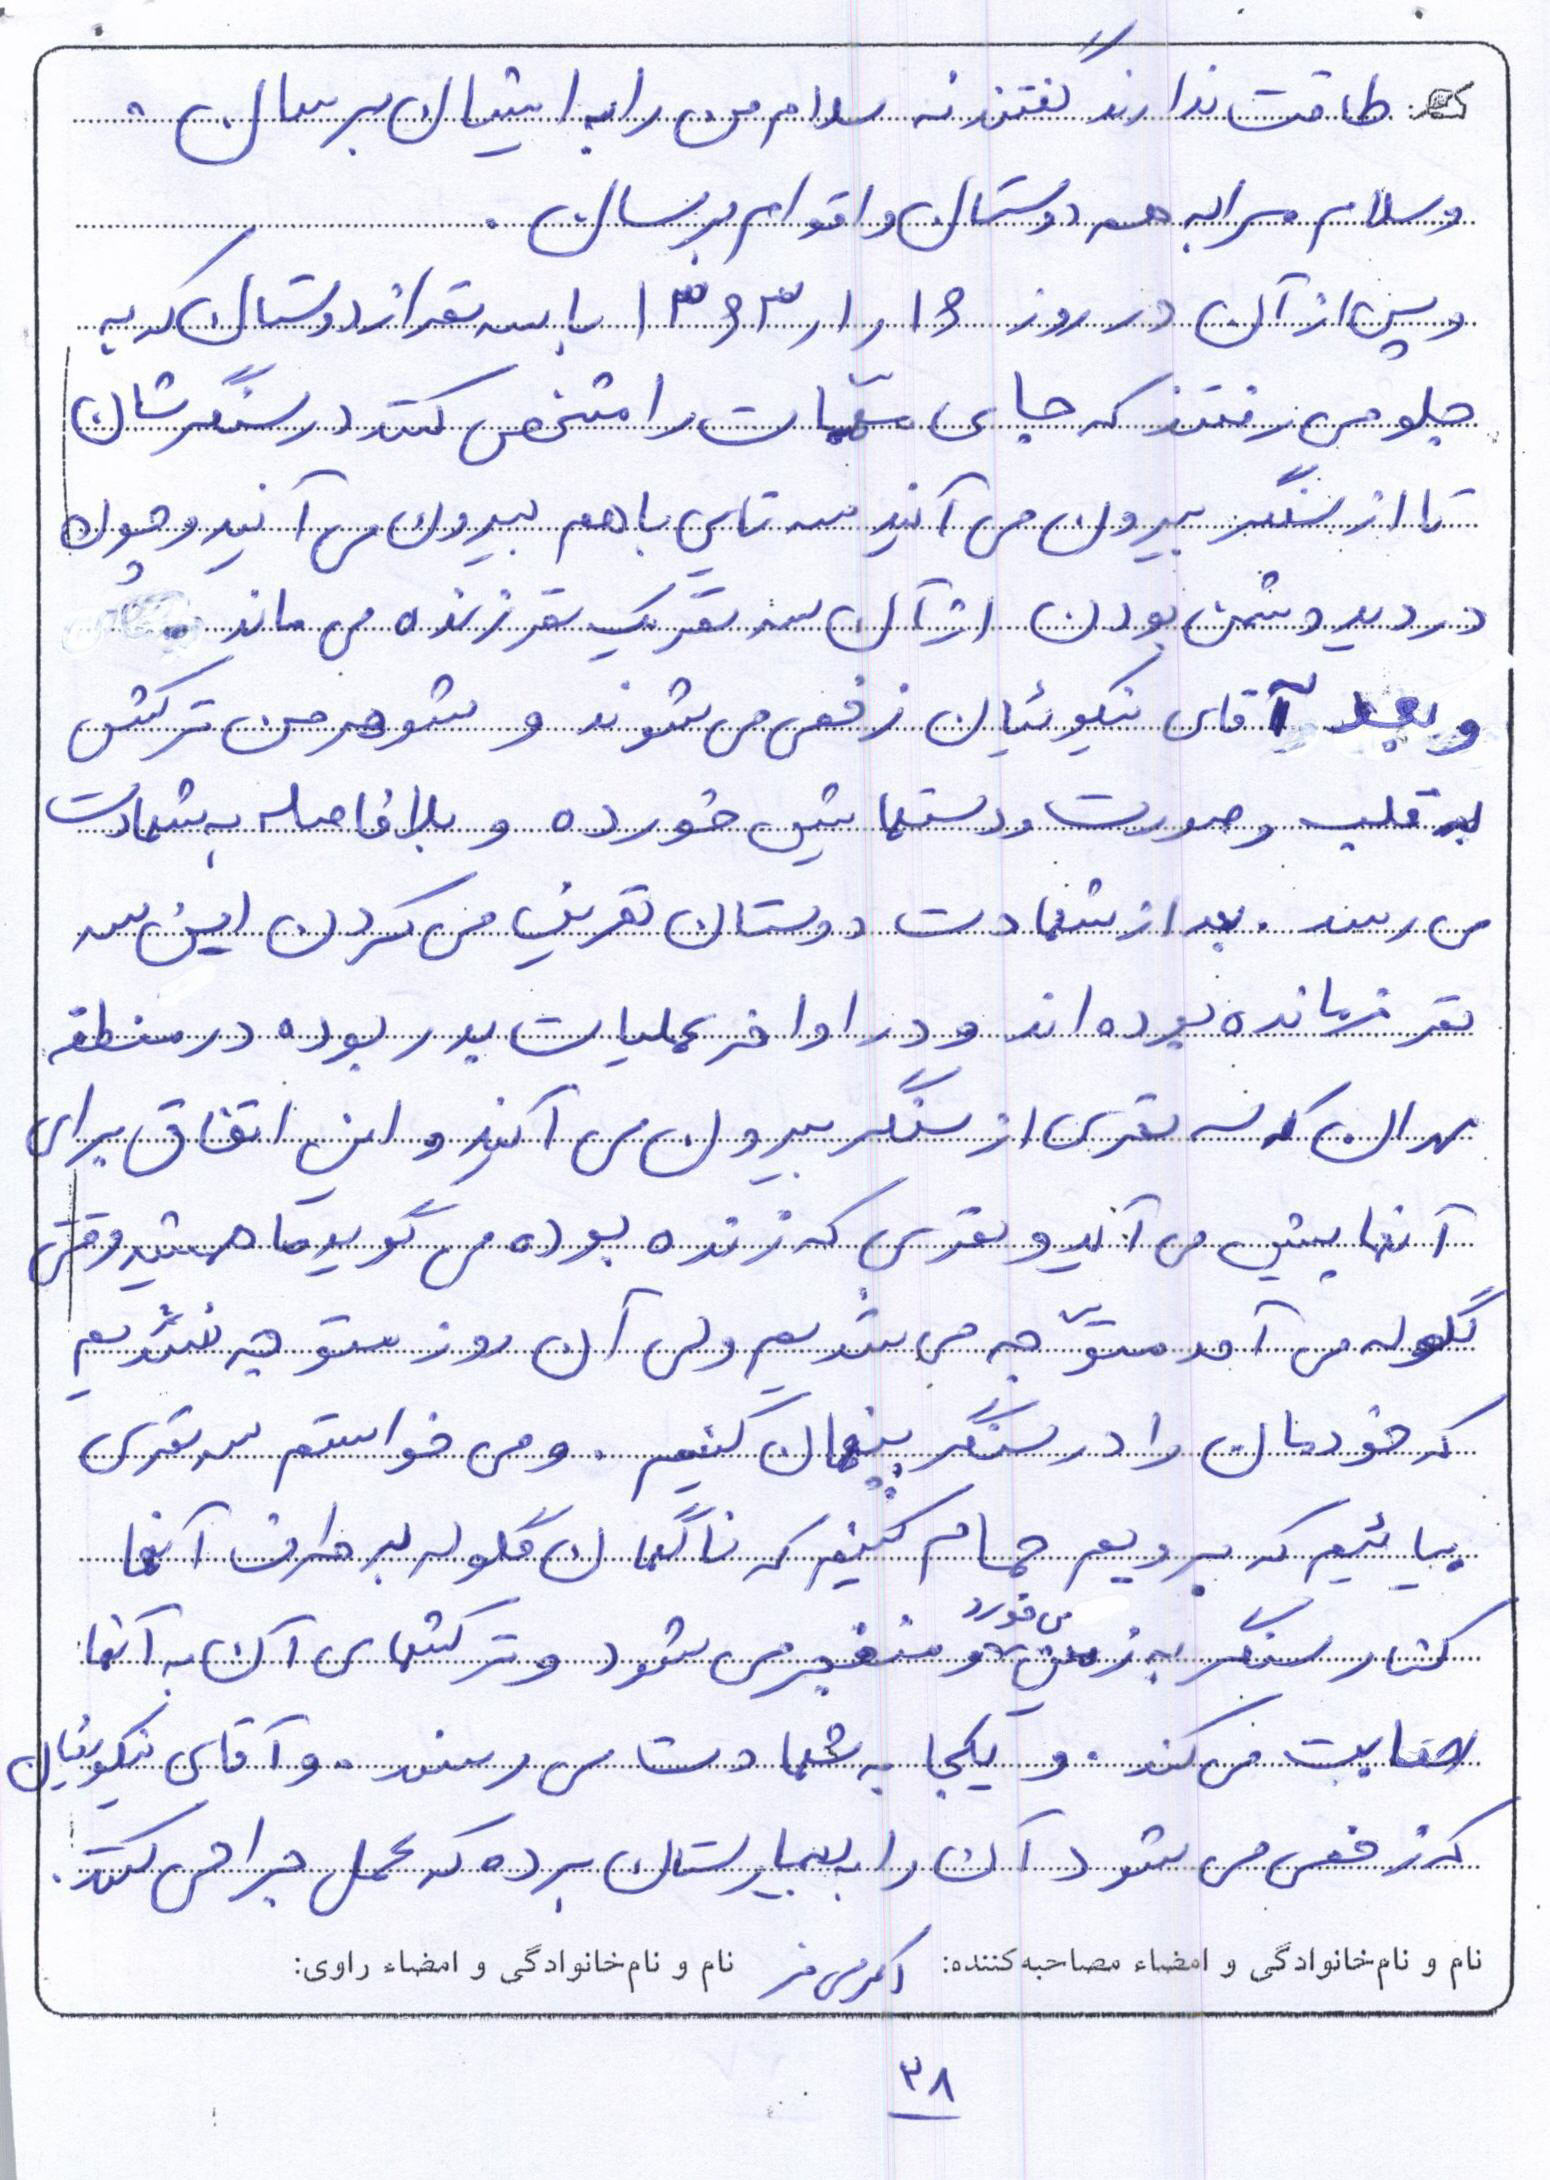 طاقت ندارند گفتند نه سلام من را به ایشان برسان.
و سلام مرا به همه دوستان و اقوام برسان.
و پس از آن در روز ۱۶ر۱ر۱۳۶۳ با سه نفر از دوستان که به
جلو می رفتند که جای مهمات را مشخص کنند در سنگرشان
تا از سنگر بیرون می آیند سه تایی باهم بیرون می آیند و چون
در دید دشمن بودن از آن سه نفر یک نفر زنده می ماند
و بعد آقای نیکوئیان زخمی می شوند و شوهر من ترکش
به قلب و صورت و دستهایش خورده و بلافاصله به شهادت
می رسند. بعد از شهادت دوستان تعریف می کردن این سه
نفر فرمانده بوده اند و در اواخر عملیات بدر بوده در منطقه
که سه نفری از سنگر بیرون می آیند و این اتفاق برای
آنها پیش می آید و نفری که زنده بوده می گوید ما همیشه وقتی
گلوله می آمد متوّجه می شدیم ولی آن روز متوجه نشدیم
که خودمان را در سنگر پنهان کنیم. و می خواستم سه نفری
بیائیم که برویم حمام کنیم که ناگهان گلوله به طرف آنها
کنار سنگر به زمین می خورد و منفجر می شود و ترکشهای آن به آنها
اصابت می کند. و یکجا به شهادت می رسند. و آقای نیکوئیان
که زخمی می شود آن را به بیمارستان برده که عمل جراحی کنند.
نام و نام‌خانوادگی و امضاء مصاحبه‌کننده: نام و نام‌خانوادگی و امضاء راوی:
۳۸